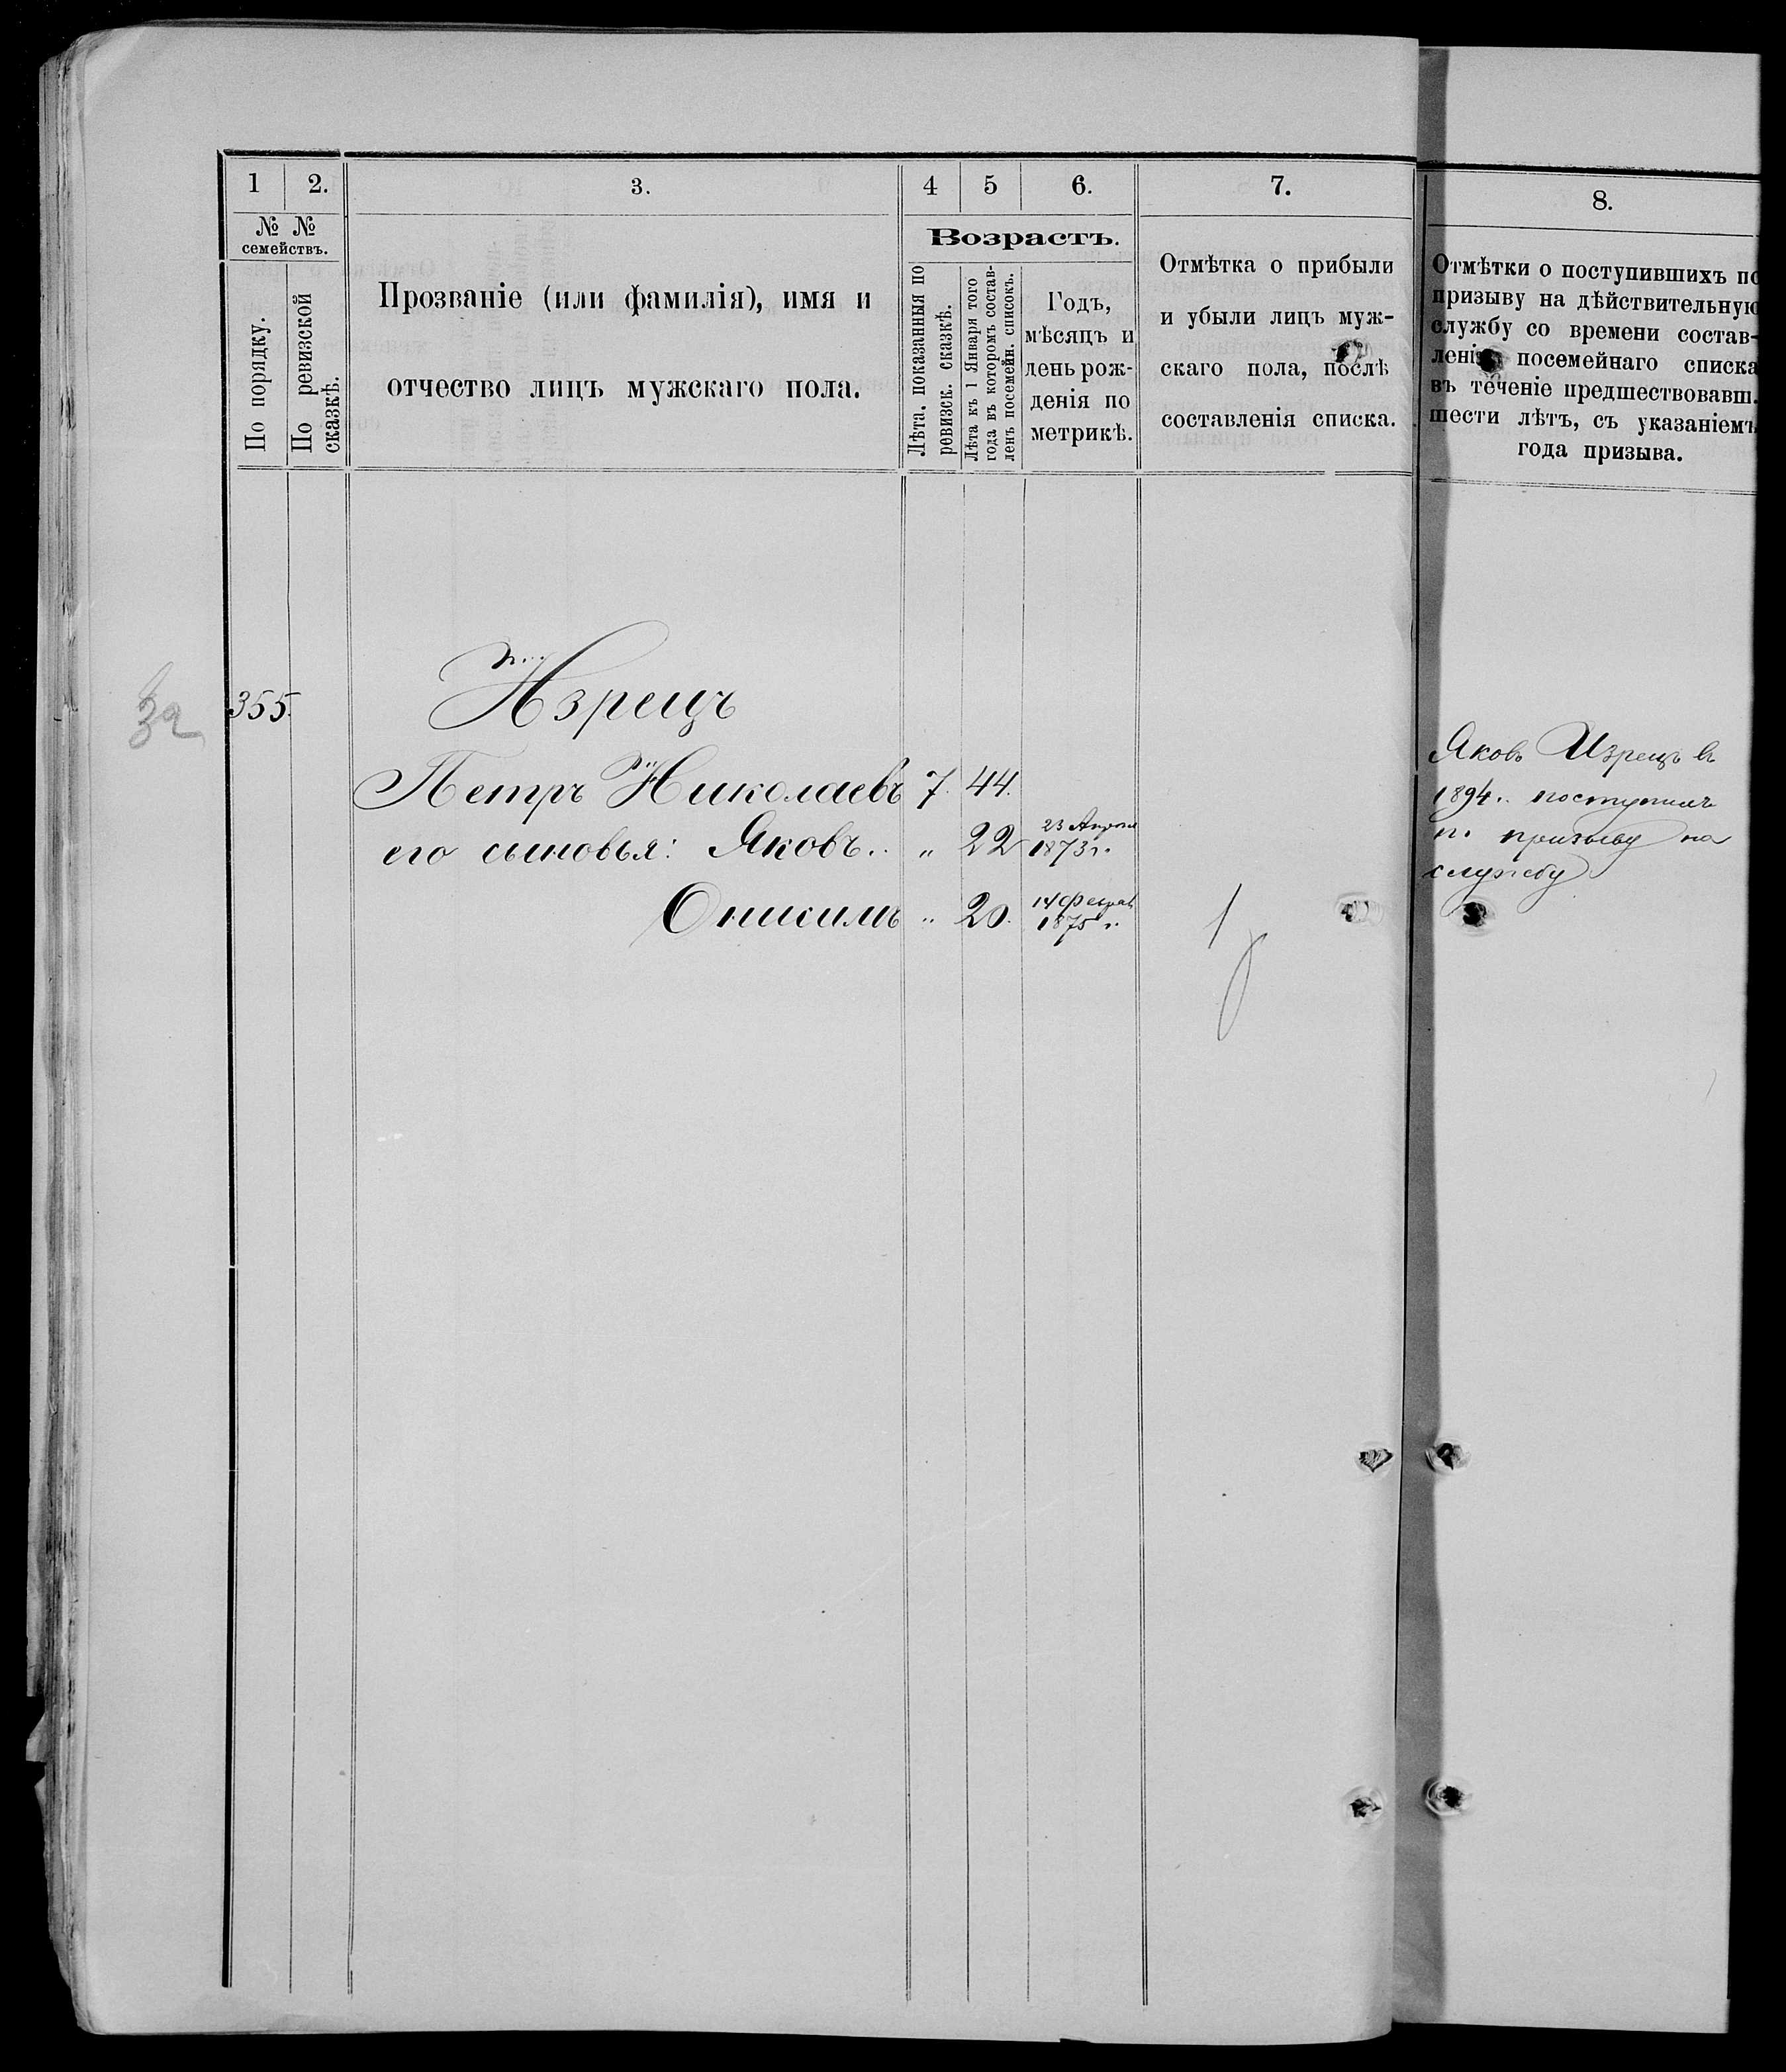 1
2.
3.
4
5
6.
7.
8.
№ №
семействъ.
По порядку.
По ревизской
сказкѣ.
Прозваніе (или фамилія), имя и
отчество лицъ мужскаго пола.
Возрастъ.
Лѣта, показанныя по
ревизск. сказкѣ.
Лѣта къ 1 Января того
года въ которомъ состав-
ленъ посемейн. списокъ.
Годъ,
мѣсяцъ и
день рож-
денія по
метрикѣ.
Отмѣтка о прибыли
и убыли лицъ муж-
скаго пола, послѣ
составленія списка.
Отмѣтки о поступившихъ по
призыву на дѣйствительную
службу со времени состав-
ленія посемейнаго списка
въ теченіе предшествовавш.
шести лѣтъ, съ указаніемъ
года призыва.
355.
Изрецъ
Петръ Николаевъ 7. 44.
его сыновья: Яковъ. „ 22 23 Апреля
1873 г.
Онисимъ „ 20. 14 Феврал
1875 г.
1
Яковъ Изрецъ въ
1894 г. поступилъ
п. призыву на
службу